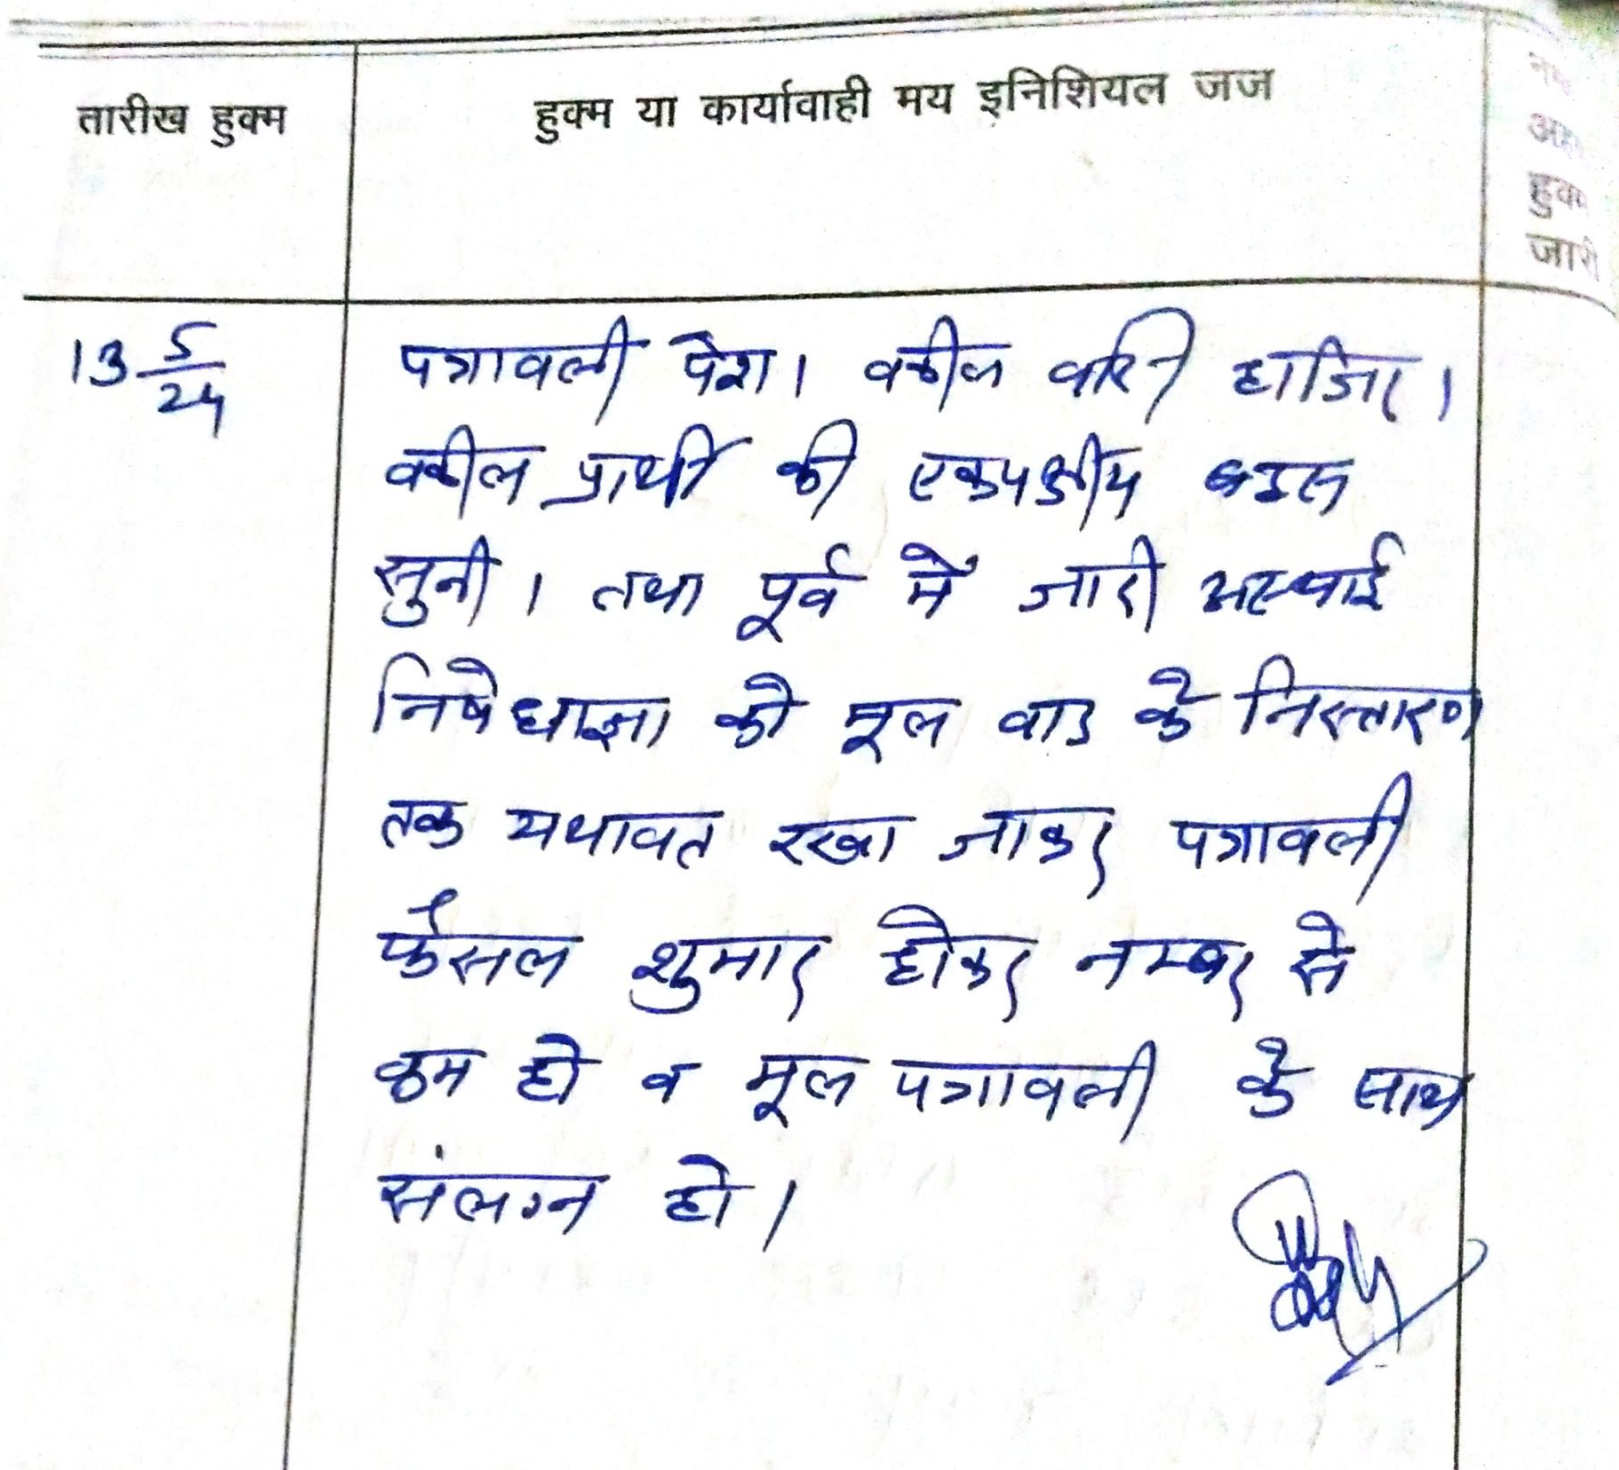 तारीख हुक्म
हुक्म या कार्यावाही मय इनिशियल जज
हुक्म
जारी
13 5/24
पत्रावली पेश। वकील हाजिर।
वकील प्रार्थी की एकपक्षीय बहस
सुनी। तथा पूर्व में जारी अस्थाई
निषेधाज्ञा को मूल वाद के निस्तारण
तक यथावत रखा जाकर पत्रावली
फैसल शुमार होकर नम्बर से
कम हो व मूल पत्रावली के साथ
संलग्न हो।